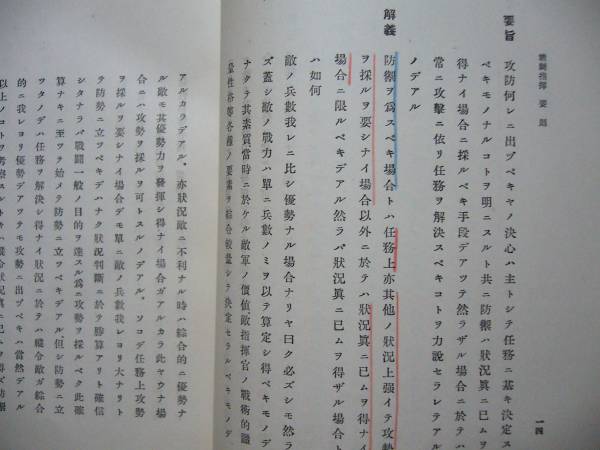 戰鬪指揮 要則
一四
要旨
攻防何レニ出ヅベキヤノ決心ハ主トシテ任務ニ基キ決定ス
ベキモノナルコトヲ明ニスルト共ニ防禦ハ狀況眞ニ已ムヲ
得ナイ場合ニ採ルベキ手段デアツテ然ラザル場合ニ於テハ
常ニ攻擊ニ依リ任務ヲ解決スベキコトヲ力說セラレテアル
ノデアル
解義
防禦ヲ爲スベキ場合トハ任務上亦其他ノ狀況上强イテ攻勢
ヲ採ルヲ要シナイ場合以外ニ於テハ狀況眞ニ已ムヲ得ナイ
場合ニ限ルベキデアル然ラバ狀況眞ニ已ムヲ得ザル場合ト
ハ如何
敵ノ兵數我レニ比シ優勢ナル場合ナリヤ曰ク必ズシモ然ラ
ズ蓋シ敵ノ戰力ハ單ニ兵數ノミヲ以テ算定シ得ベキモノデ
ナクテ其素質當時ニ於ケル敵軍ノ價値、敵指揮官ノ戰術的識
量性格等各種ノ要素ヲ綜合較量シテ決定セラルベキモノデ
アルカラデアル。亦狀況敵ニ不利ナル時ハ綜合的ニ優勢ナ
ル敵モ其優勢力ヲ發揮シ得ナイ場合ガアルカラ此ヤウナ場
合ニハ攻勢ヲ採ルヲ可トスルノデアル。ソコデ任務上攻勢
ヲ採ルヲ要シナイ場合デモ單ニ敵ノ兵數我レヨリ大ナリト
テ防勢ニ立ツベキデハナク狀況判斷ニ於テ勝算アリト確信
シタナラバ戰鬪一般ノ目的ヲ達スル爲ニ攻勢ヲ採ルベク此確
算ナキニ至ツテ始メテ防勢ニ立ツベキデアル但シ防勢ニ立
ツタノデハ任務ヲ解決シ得ナイ狀況ニ於テハ縱令敵ガ綜合
的ニ我レヨリ優勢デアツテモ攻勢ニ出ヅベキハ當然デアル
以上ノコトヲ考察スルトキハ